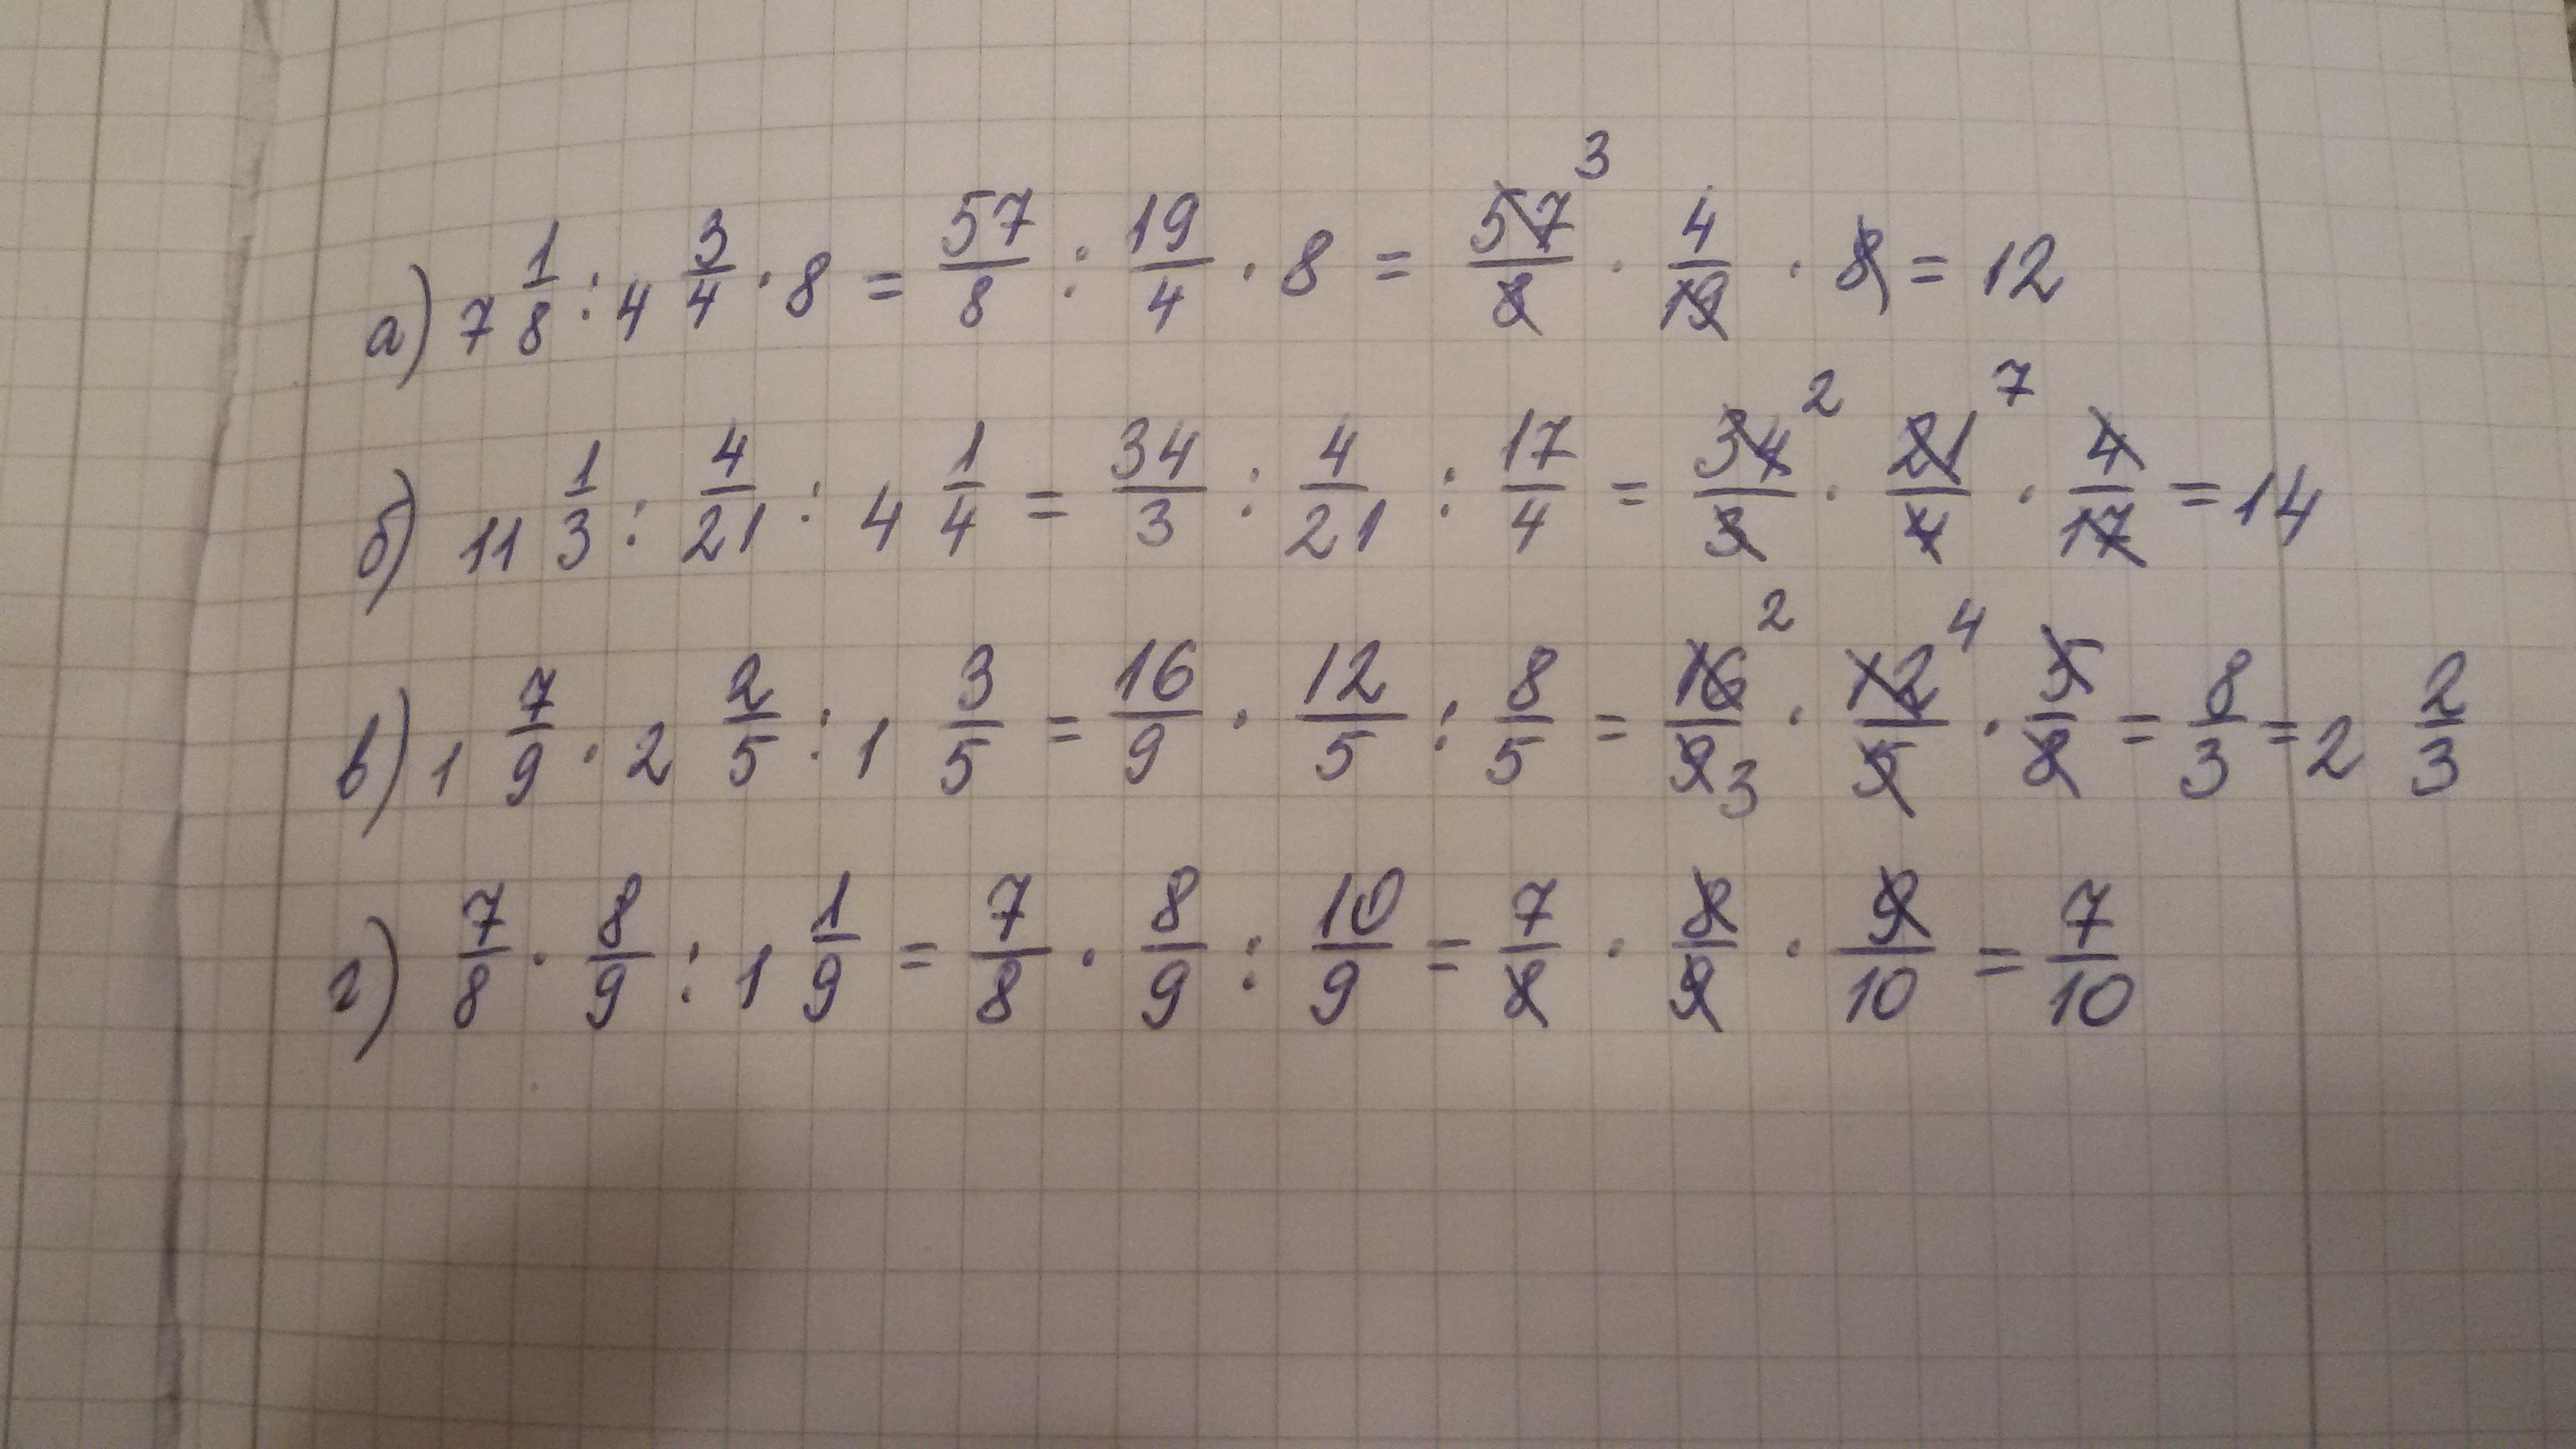 а) 7 1/8 : 4 3/4 · 8 = 57/8 : 19/4 · 8 = 57/8 3 · 4/19 · 8 = 12
б) 11 1/3 : 4/21 : 4 1/4 = 34/3 : 4/21 : 17/4 = 34/3 2 · 21/4 7 · 4/17 = 14
в) 1 7/9 · 2 2/5 : 1 3/5 = 16/9 · 12/5 : 8/5 = 16/9 2 3 · 12/5 4 · 5/8 = 8/3 = 2 2/3
г) 7/8 · 8/9 : 1 1/9 = 7/8 · 8/9 : 10/9 = 7/8 · 8/9 · 9/10 = 7/10